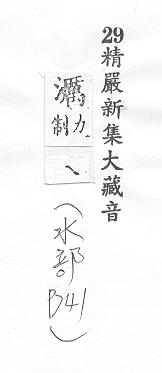 29精嚴新集大藏音
力
制
(水部B41)